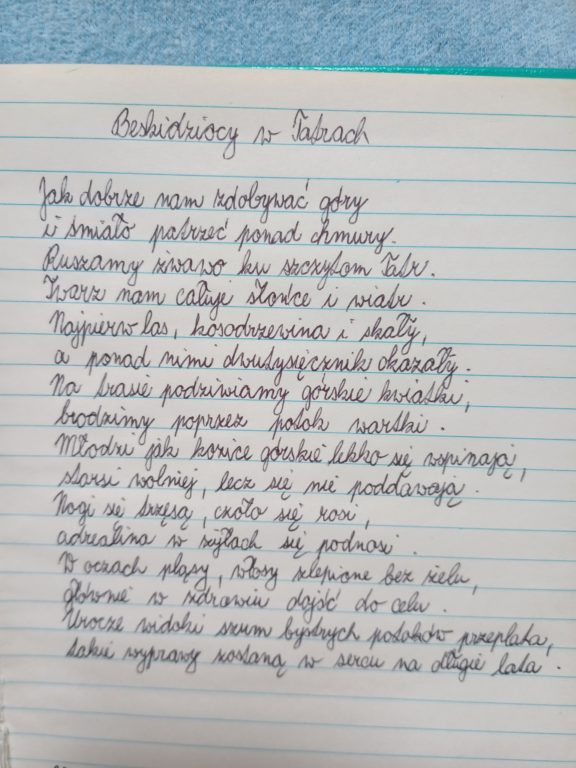 Beskidziocy w Tatrach
Jak dobrze nam zdobywać góry
i śmiało patrzeć ponad chmury.
Ruszamy żwawo ku szczytom Tatr.
Twarz nam całuje słońce i wiatr.
Najpierw las, kosodrzewina i skały,
a ponad nimi dwutysięcznik okazały.
Na trasie podziwiamy górskie kwiatki,
brodzimy poprzez potok wartki.
Młodzi jak kozice górskie lekko się wspinają,
starsi wolniej, lecz się nie poddawają.
Nogi się trzęsą, czoło się rosi,
adrealina w żyłach się podnosi.
W oczach pląsy, włosy zlepione bez żelu,
głównie w zdrowiu dojść do celu.
Urocze widoki szum bystrych potoków przeplata,
takie wyprawy zostaną w sercu na długie lata.